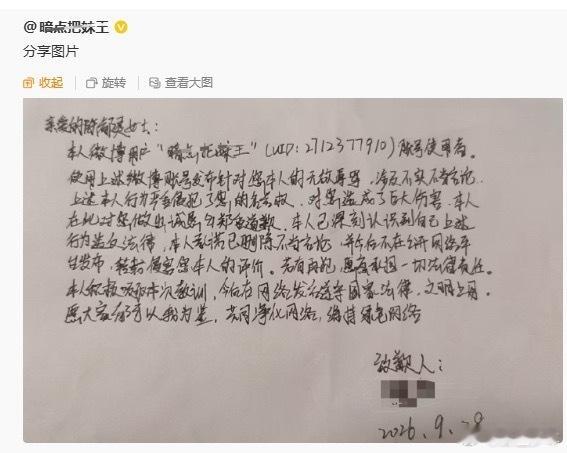 @暗点把妹王
分享图片
收起 旋转 查看大图
亲爱的陈都灵女士:
本人微博用户"暗点把妹王"(UID:2712377910)账号使用者。
使用上述微博账号发布针对您本人的无故辱骂、涉及不实不当言论。
上述本人行为严重侵犯了您的名誉权,对您造成了巨大伤害。本人
在此对您做出诚恳与郑重道歉。本人已深刻认识到自己上述
行为违反法律,本人承诺已删除不当言论,并今后不在公开网络平
台发布,转载侵害您本人的评价。若有再犯,愿意承担一切法律责任。
本人积极吸取本次教训,今后在网络发言遵守国家法律,文明上网。
愿大家都可以我为鉴,共同净化网络,维持绿色网络
致歉人:
2026.9.28